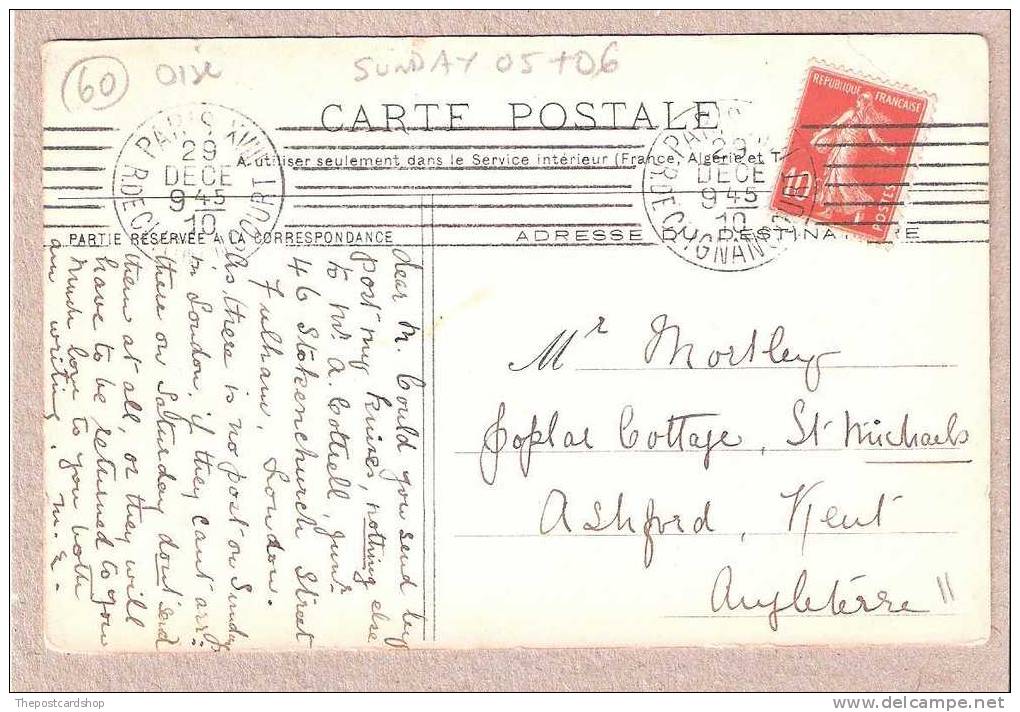 60
Oise
SUNDAY 05+06
CARTE POSTALE
A utiliser seulement dans le Service intérieur (France, Algérie et T
PARTIE RÉSERVÉE A LA CORRESPONDANCE
ADRESSE DU DESTINATAIRE
PARIS XVIII
29
DECE
9 45
10
R DE CLIGNANCOURT
PARIS
29
DECE
9 45
10
R DE CLIGNANCOURT
REPUBLIQUE FRANÇAISE
10
POSTES
dear M. Could you send by
post my knives, nothing else
to Mr A. Cottrell, Junr
46 Stokenchurch Street
Fulham. London.
As, there is no post on Sunday
in London, if they cant arr:
there on Saturday dont send
them at all, or they will
have to be returned to you
Much love to you both
am writing. M. E.
Mr Mortley
Poplar Cottage, St Michaels
Ashford, Kent
Angleterre
Thepostcardshop
www.delcampe.net